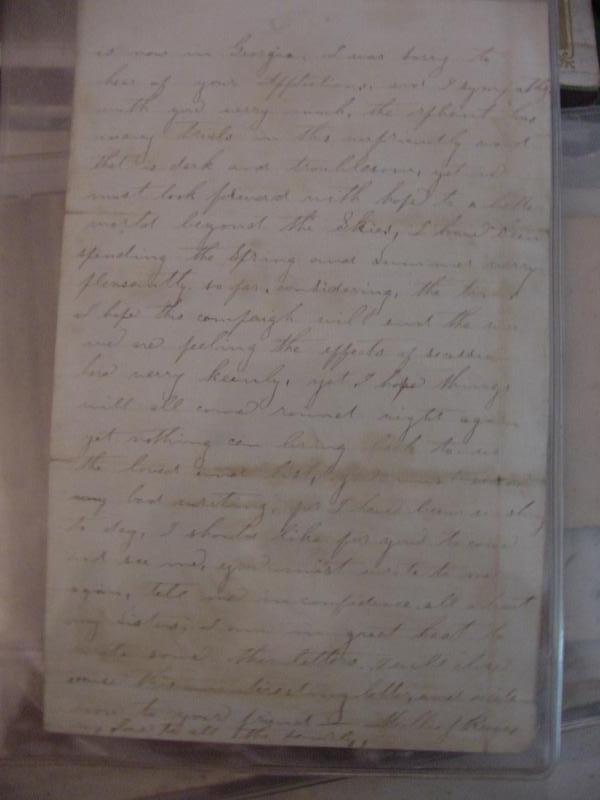 is now in Georgia, I was sorry to
hear of your Afflictions, and I sympathy
with you verry much, the orphant has
many trials in this unfriendly world
that is dark and troublesome, yet we
must look forward with hope to a better
world beyond the Skies, I have been
spending the Spring and Summer verry
pleasantly so far, considering, the times
I hope this campaigh will end the war
we are feeling the effects of
here verry keenly, yet I hope things
will all come round right again
yet nothing can bring back to us
the loved and lost, you must
my bad writing, for I have been
to day, I should like for you to come
and see me, you must write to me
again, tell me in confidence all about
my sisters, I am in great hast to
write some other letters, I will close
this letter, and write
soon to your friend
my love to all the family,